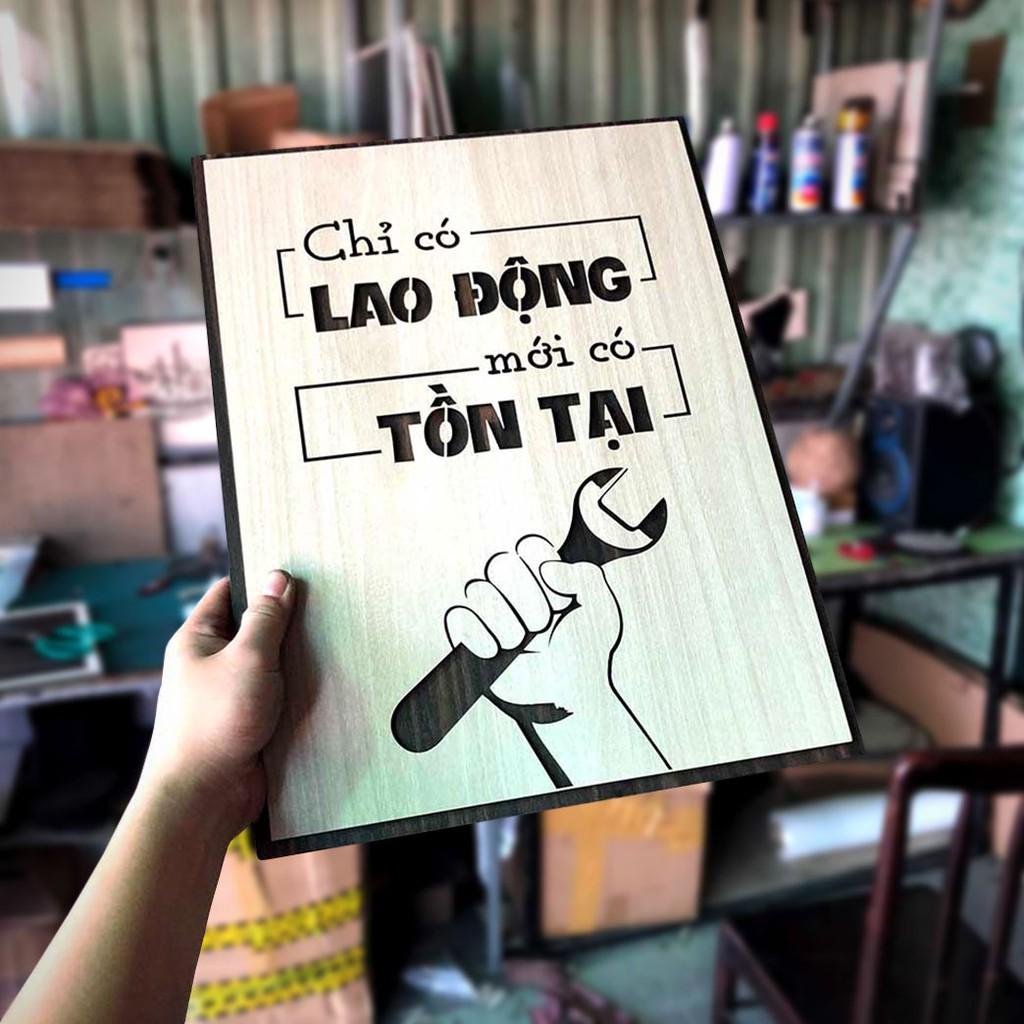 Chỉ có
LAO ĐỘNG
mới có
TỒN TẠI